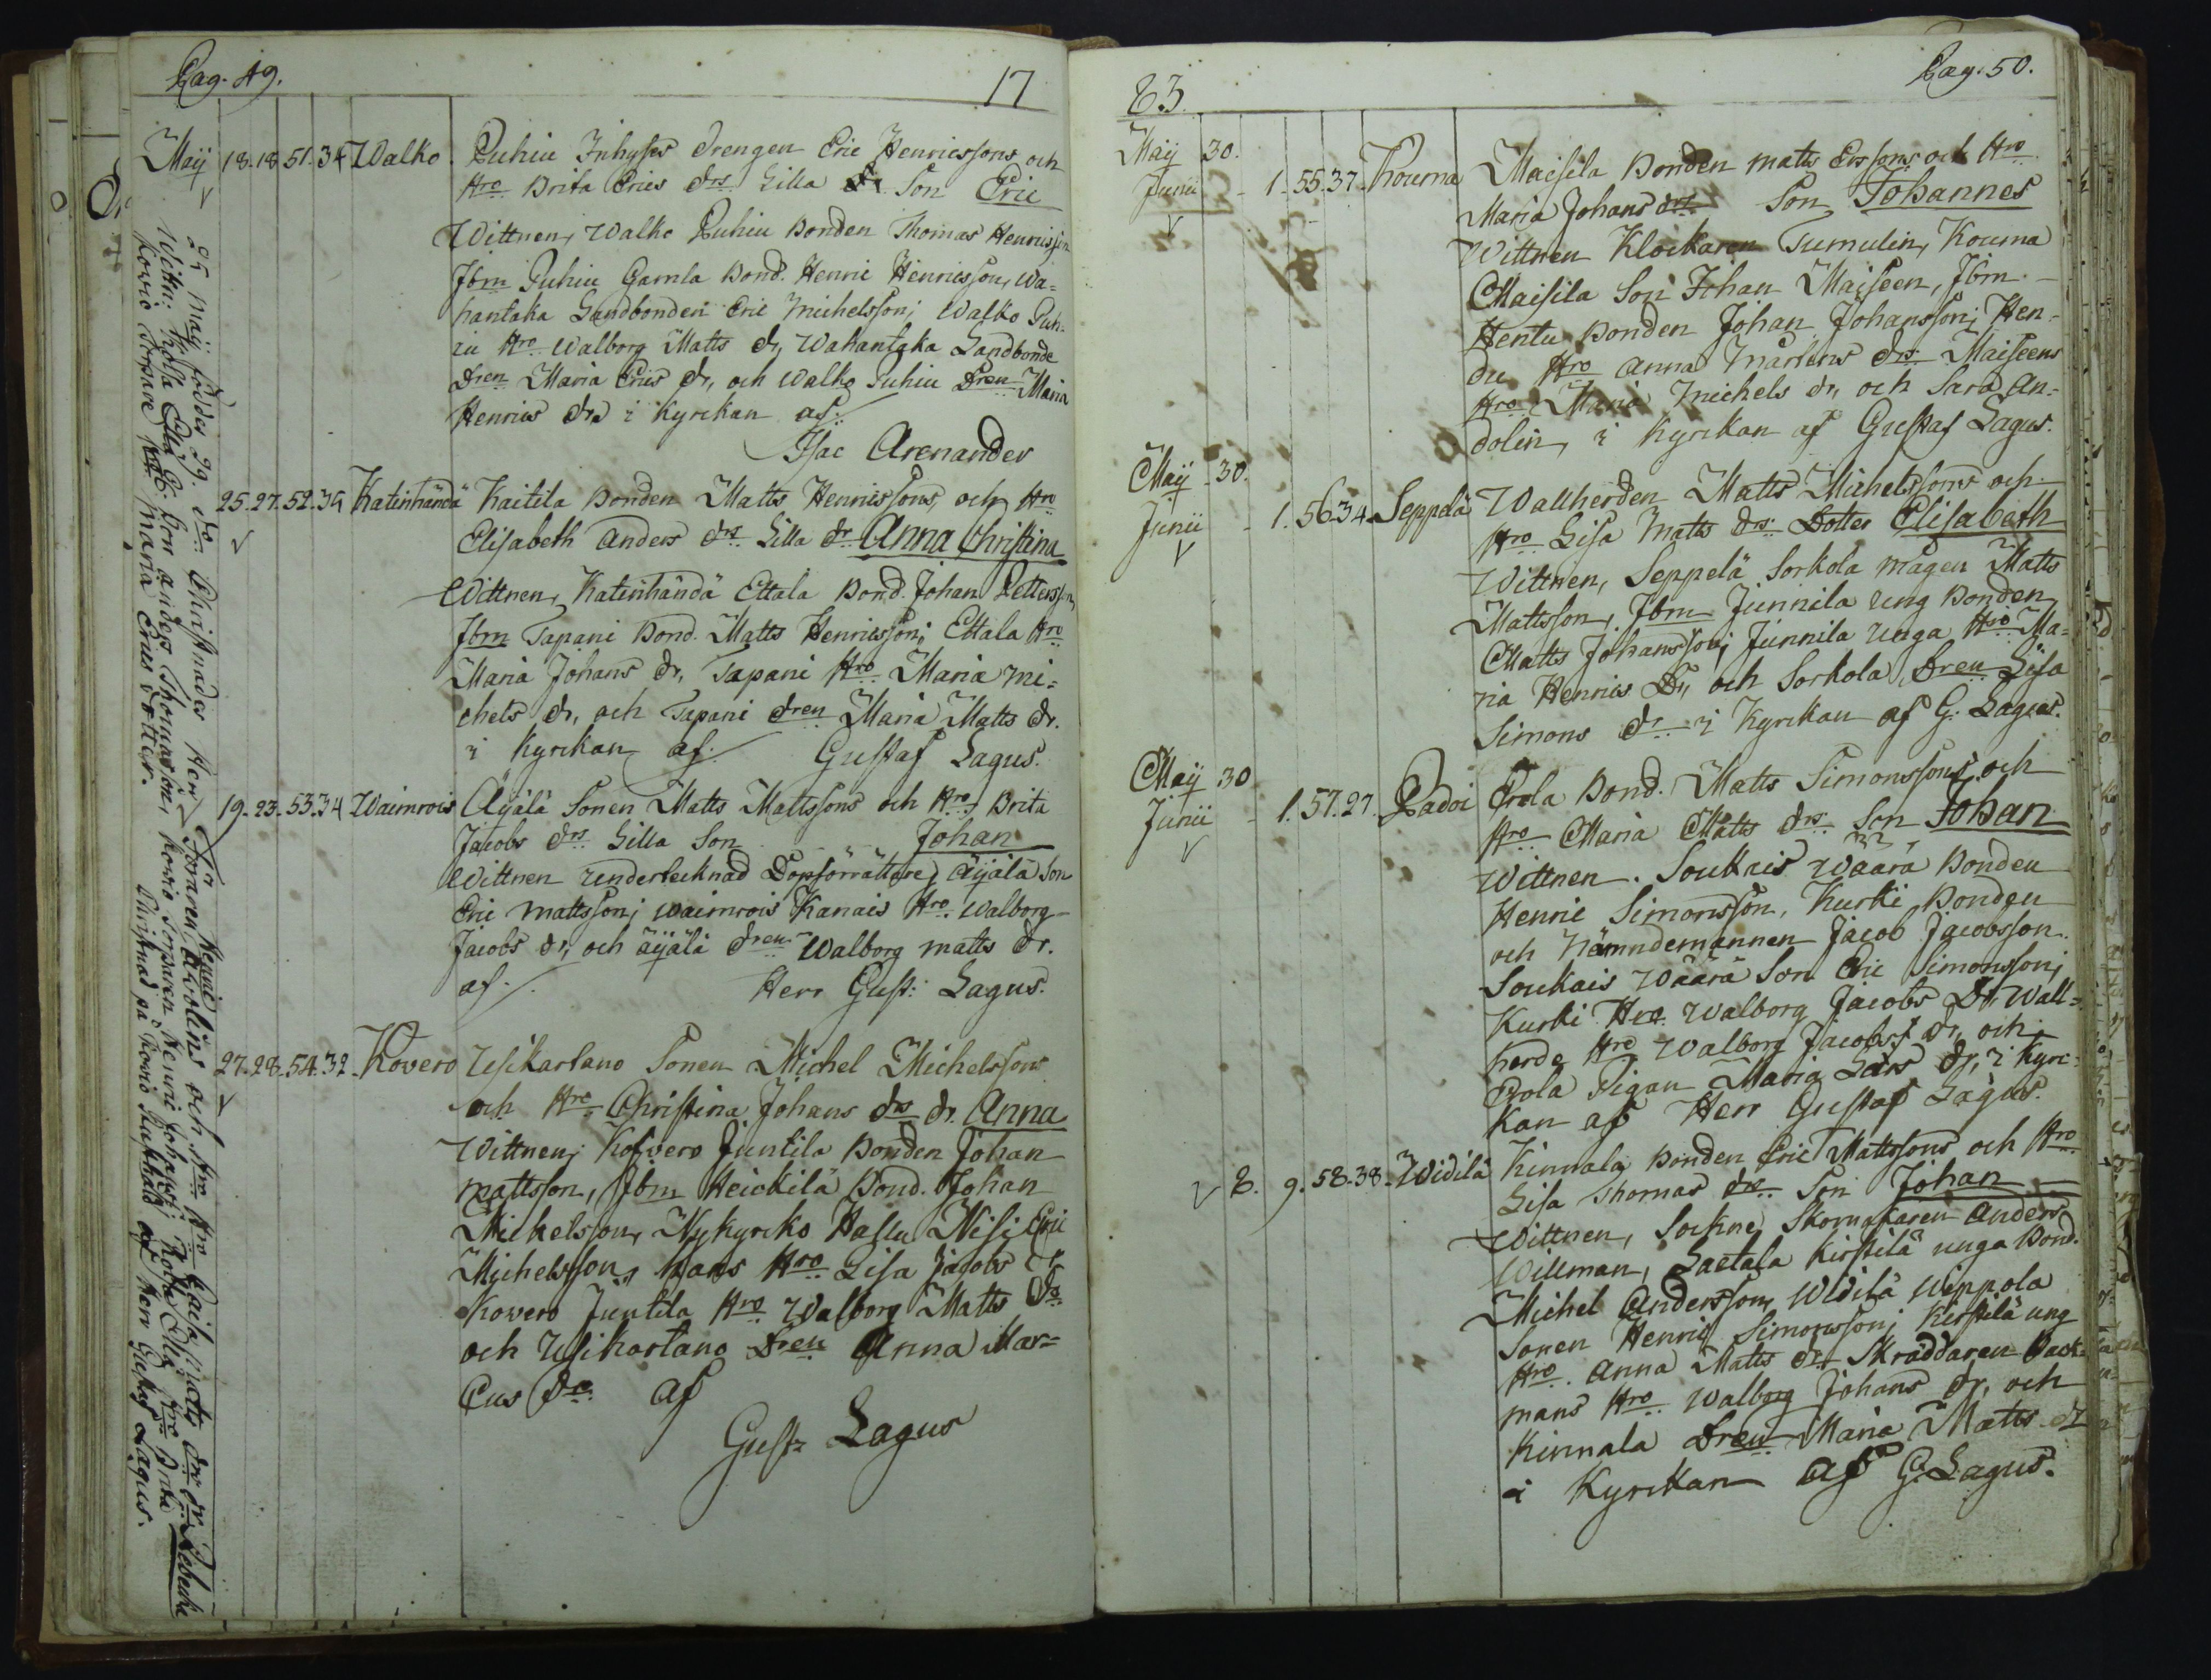 Pag. 49.
17
Maij 18. 18. 51. 34 Walko. Puhiu Inhyses drengen Eric Henricssons och
Hro Brita Erics drs Lilla Son Eric
Wittnen, Walko Puhiu Bonden Thomas Henricsson
Jbm Puhiu Gamla Bond. Henric Henricsson, Wa=
hantaka Landbonden Eric Michelsson; Walko Puh=
iu Hro Walborg Matts dr, Wahantaka Landbonde
dren Maria Erics dr, och Walko Puhiu Dren Maria
Henrics dr i Kyrckan af
Isac Arenander
25. 27. 52. 35 Katinhändä Kaitila Bonden Matts Henricssons och Hro
Elisabeth Anders drs Lilla dr Anna Christina
Wittnen, Katinhändä Ettala Bond. Johan Pettersson,
Jbm Tapani Bond. Matts Henricsson; Ettala Hro
Maria Johans dr, Tapani Hro Maria Mi=
chels dr, och Tapani dren Maria Matts dr.
i Kyrckan af. Gustaf Lagus.
19. 23. 53. 34 Waimrois Äijälä Sonen Matts Mattssons och Hro Brita
Jacobs drs Lilla Son Johan
Wittnen undertecknad Dopförrättare, Äijälä Son
Eric Mattsson; Waimrois Kanais Hro Walborg
Jacobs dr, och äijälä dren Walborg Matts dr.
af. Herr Gust: Lagus.
27. 28. 54. 32. Kovero Usikartano Sonen Michel Michelssons
och Hro Christina Johans drs dr. Anna
Wittnen, Kofvero Juntila Bonden Johan
Mattsson, Jbm Heickilä Bond. Johan
Mickelsson, Nykyrcko Hallu Nisi Eric
Michelsson, hans Hro Lisa Jacobs dr
Kovero Juntila Hro Walborg Matts dr
och Usikartano Dren Anna Mar=
cus dr. af
Gust: Lagus
25 Maij föddes 29. do Christnades Herr Henric Avolins och Hro Caisa Matts drs dr. Rebecka
Wittn: Anders Thomasson, Henric Johanss: Hro Brita
Maria Erics dotter. Christnad på af Herr Gustaf Lagus.
83.
Pag. 50.
Maij 30.
Junii - 1. 55. 37. Kouma Maisila Bonden Matts Erssons och Hro
Maria Johans drs Son Johannes
Wittnen Klockaren Tumulin, Kouma
Maisila Son Johan Maiseen, Jbm
Hentu Bonden Johan Johansson; Hen=
du Hro Anna Mårtens dr. Maiseens
Hro Maria Michels dr, och Sara An=
dolin, i Kyrckan af Gustaf Lagus.
Maij 30.
Junii - 1. 56. 34. Seppelä Wallherden Matts Michelssons och
Hro Lisa Matts drs Dotter Elisabeth
Wittnen, Seppelä Sorkola mågen Matts
Mattsson, Jbm Junnila Ung Bonden
Matts Johansson; Junnila unga Hro Ma=
ria Henrics Dr, och Sorkola Dren Lisa
Simons dr i Kyrckan af G. Lagus.
Maij 30
Junii - 1. 57. 27. Padoi Prola Bond. Matts Simonssons och
Hro Maria Matts drs Son Johan
Wittnen. Soukais Wäärä Bonden
Henric Simonsson, Kurki Bonden
och Nämndemannen Jacob Jacobsson.
Soukais Wäärä Son Eric Simonsson;
Kurki Hro Walborg Jacobs Dr, Wall=
herde Hro Walborg Jacobs dr, och
Prola Pigan Maria Lars dr, i Kyrc=
kan af Herr Gustaf Lagus.
8. 9. 58. 38. Widilä Kinnala Bonden Eric Mattssons och Hro
Lisa Thomas drs Son Johan
Wittnen, Sockne Skomakaren Anders
Willman, Laetala Kirstilä unga Bond.
Michel Andersson, Widilä Uppola
Sonen Henric Simonsson; Kirstilä ung
Hro Anna Matts dr Skräddaren Back=
mans Hro Walborg Johans dr, och
Kinnala Dren Maria Matts dr
i Kyrckan af G. Lagus.